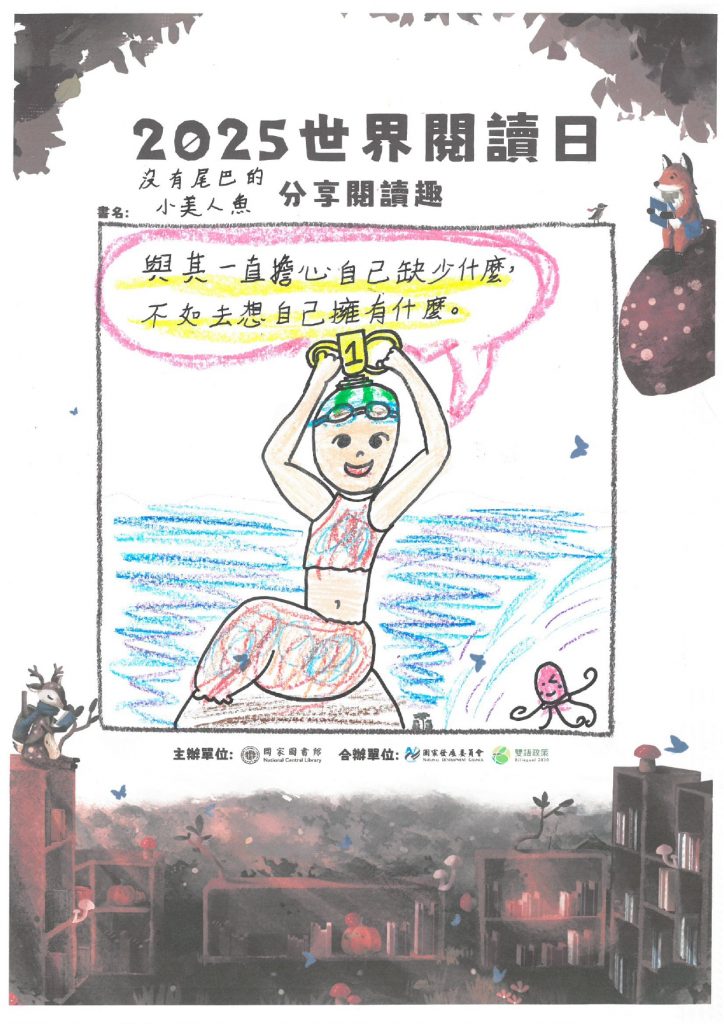 2025世界閱讀日
沒有尾巴的
小美人魚
分享閱讀趣
書名:
與其一直擔心自己缺少什麼,
不如去想自己擁有什麼。
1
主辦單位: 國家圖書館 National Central Library 合辦單位: 國家發展委員會 NATIONAL DEVELOPMENT COUNCIL 雙語政策 Bilingual 2030